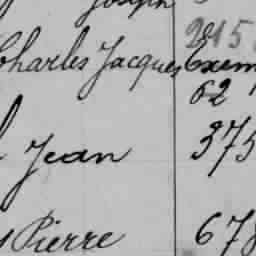 Joseph
2815
Charles Jacques Exem
62
Jean 375
Pierre 678